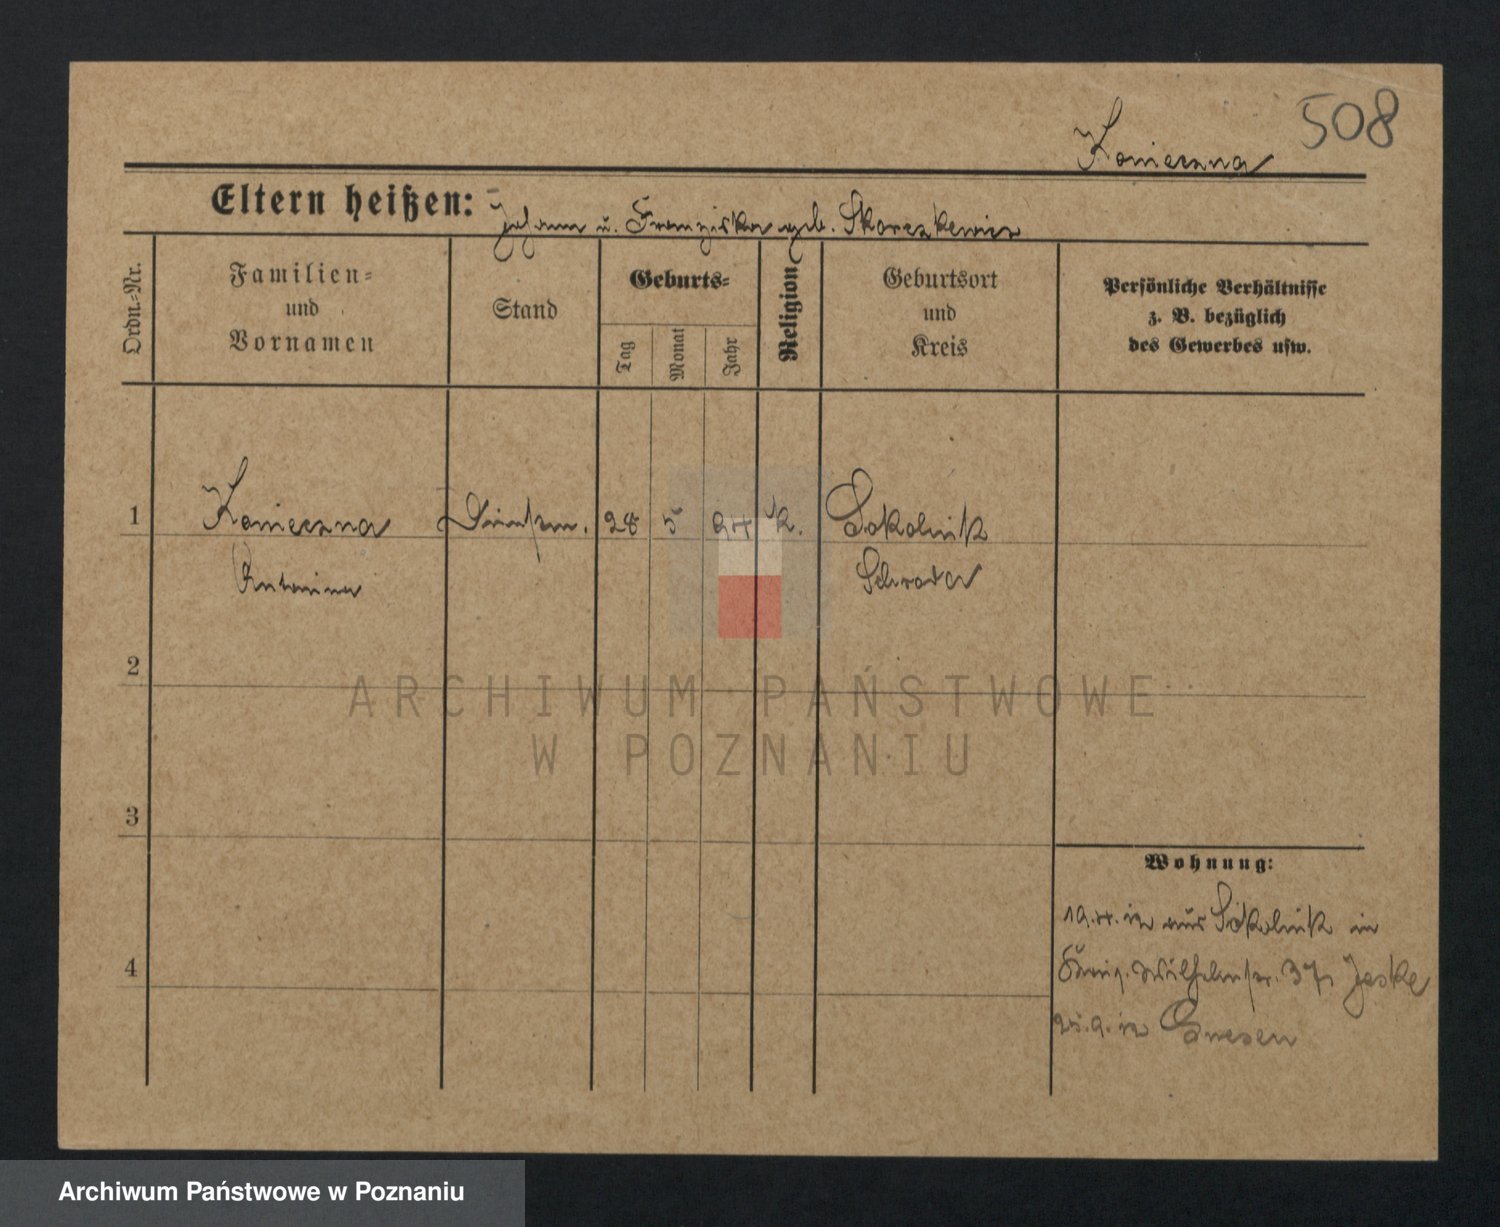 508
Konieczna
Eltern heißen: Johann u. Franziska geb. Skoraszkewicz
Ordn.-Nr.
Familien-
und
Vornamen
Stand
Geburts-
Tag
Monat
Jahr
Religion
Geburtsort
und
Kreis
Persönliche Verhältnisse
z. B. bezüglich
des Gewerbes usw.
1 Konieczna Dienstm. 28 5 94 k. Sokolnik
Antonina Schroda
2
3
4
Wohnung:
19.4.12 aus Sokolnik in
Wilhelmstr. 37, Jeske
25.9.12 Gnesen
ARCHIWUM PAŃSTWOWE
W POZNANIU
Archiwum Państwowe w Poznaniu